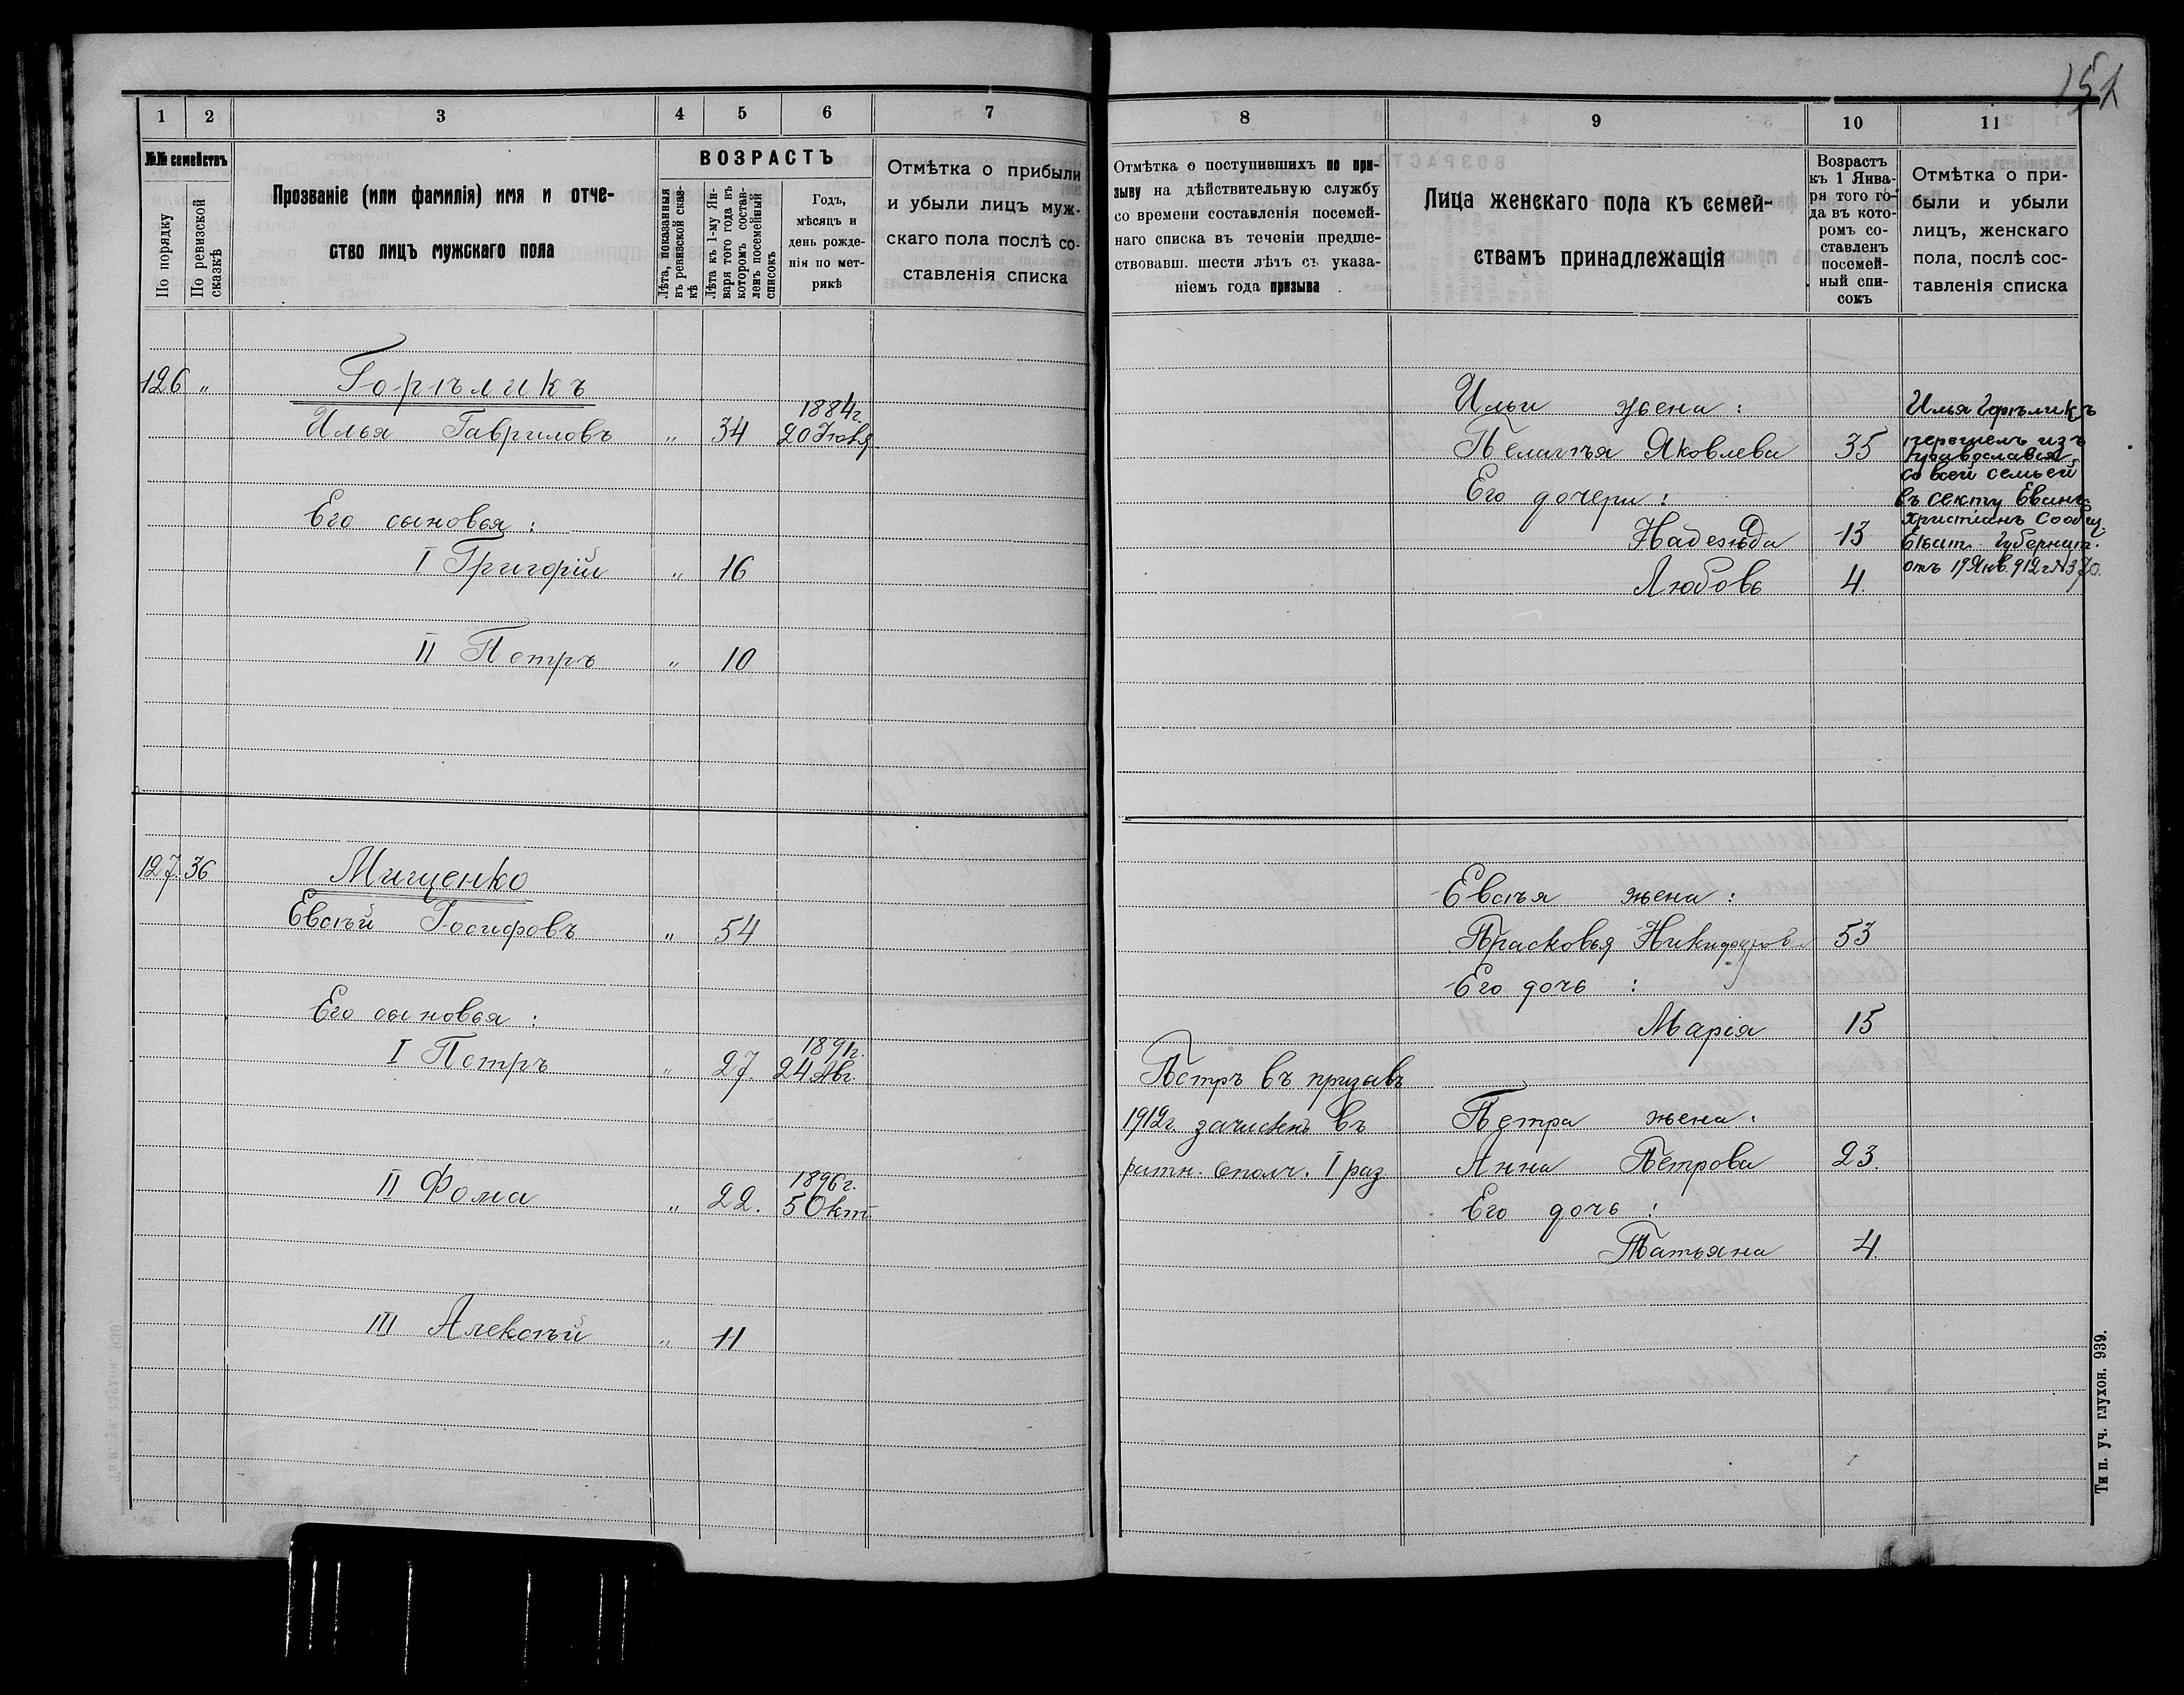 151
1 2 3 4 5 6 7
№№ семействъ
По порядку
По ревизской сказкѣ
Прозваніе (или фамилія) имя и отче-
ство лицъ мужскаго пола
ВОЗРАСТЪ
Лѣта, показанныя въ ревизской сказ-кѣ
Лѣта къ 1-му Ян-варя того года въ которомъ состав-ленъ посемейный списокъ
Годъ,
мѣсяцъ и
день рожде-
нія по мет-
рикѣ
Отмѣтка о прибыли
и убыли лицъ муж-
скаго пола послѣ со-
ставленія списка
126 „ Горѣликъ
Илья Гавриловъ „ 34 1884г.
20 Іюля
Его сыновья:
I Григорій „ 16
II Петръ „ 10
127. 36 Мищенко
Евсѣй Іосифовъ „ 54
Его сыновья:
I Петръ „ 27. 1891г.
24 Авг.
II Фома „ 22. 1896г.
5 Окт.
III Алексѣй „ 11
8 9 10 11
Отмѣтка о поступившихъ по при-
зыву на дѣйствительную службу
со времени составленія посемей-
наго списка въ теченіи предше-
ствовавш. шести лѣтъ съ указа-
ніемъ года призыва
Лица женскаго пола къ семей-
ствамъ принадлежащія
Возрастъ
къ 1 Янва-
ря того го-
да въ кото-
ромъ со-
ставленъ
посемей-
ный спи-
сокъ
Отмѣтка о при-
были и убыли
лицъ, женскаго
пола, послѣ сос-
тавленія списка
Ильи жена:
Пелагѣя Яковлева 35
Его дочери:
Надежда 13
Любовь 4.
Илья Горѣликъ
перешелъ изъ
Православія
со всей семьей
въ секту Еванг.
Христіанъ Сообщ.
Екат. Губернат.
отъ 19 Янв. 912 г. №370.
Евсѣя жена:
Прасковья Никифорова 53
Его дочь:
Марія 15
Петръ въ призывъ
1912г. зачисленъ въ
ратн. ополч. I раз.
Петра жена:
Анна Петрова 23.
Его дочь:
Татьяна 4.
Тип. уч. глухон. 939.